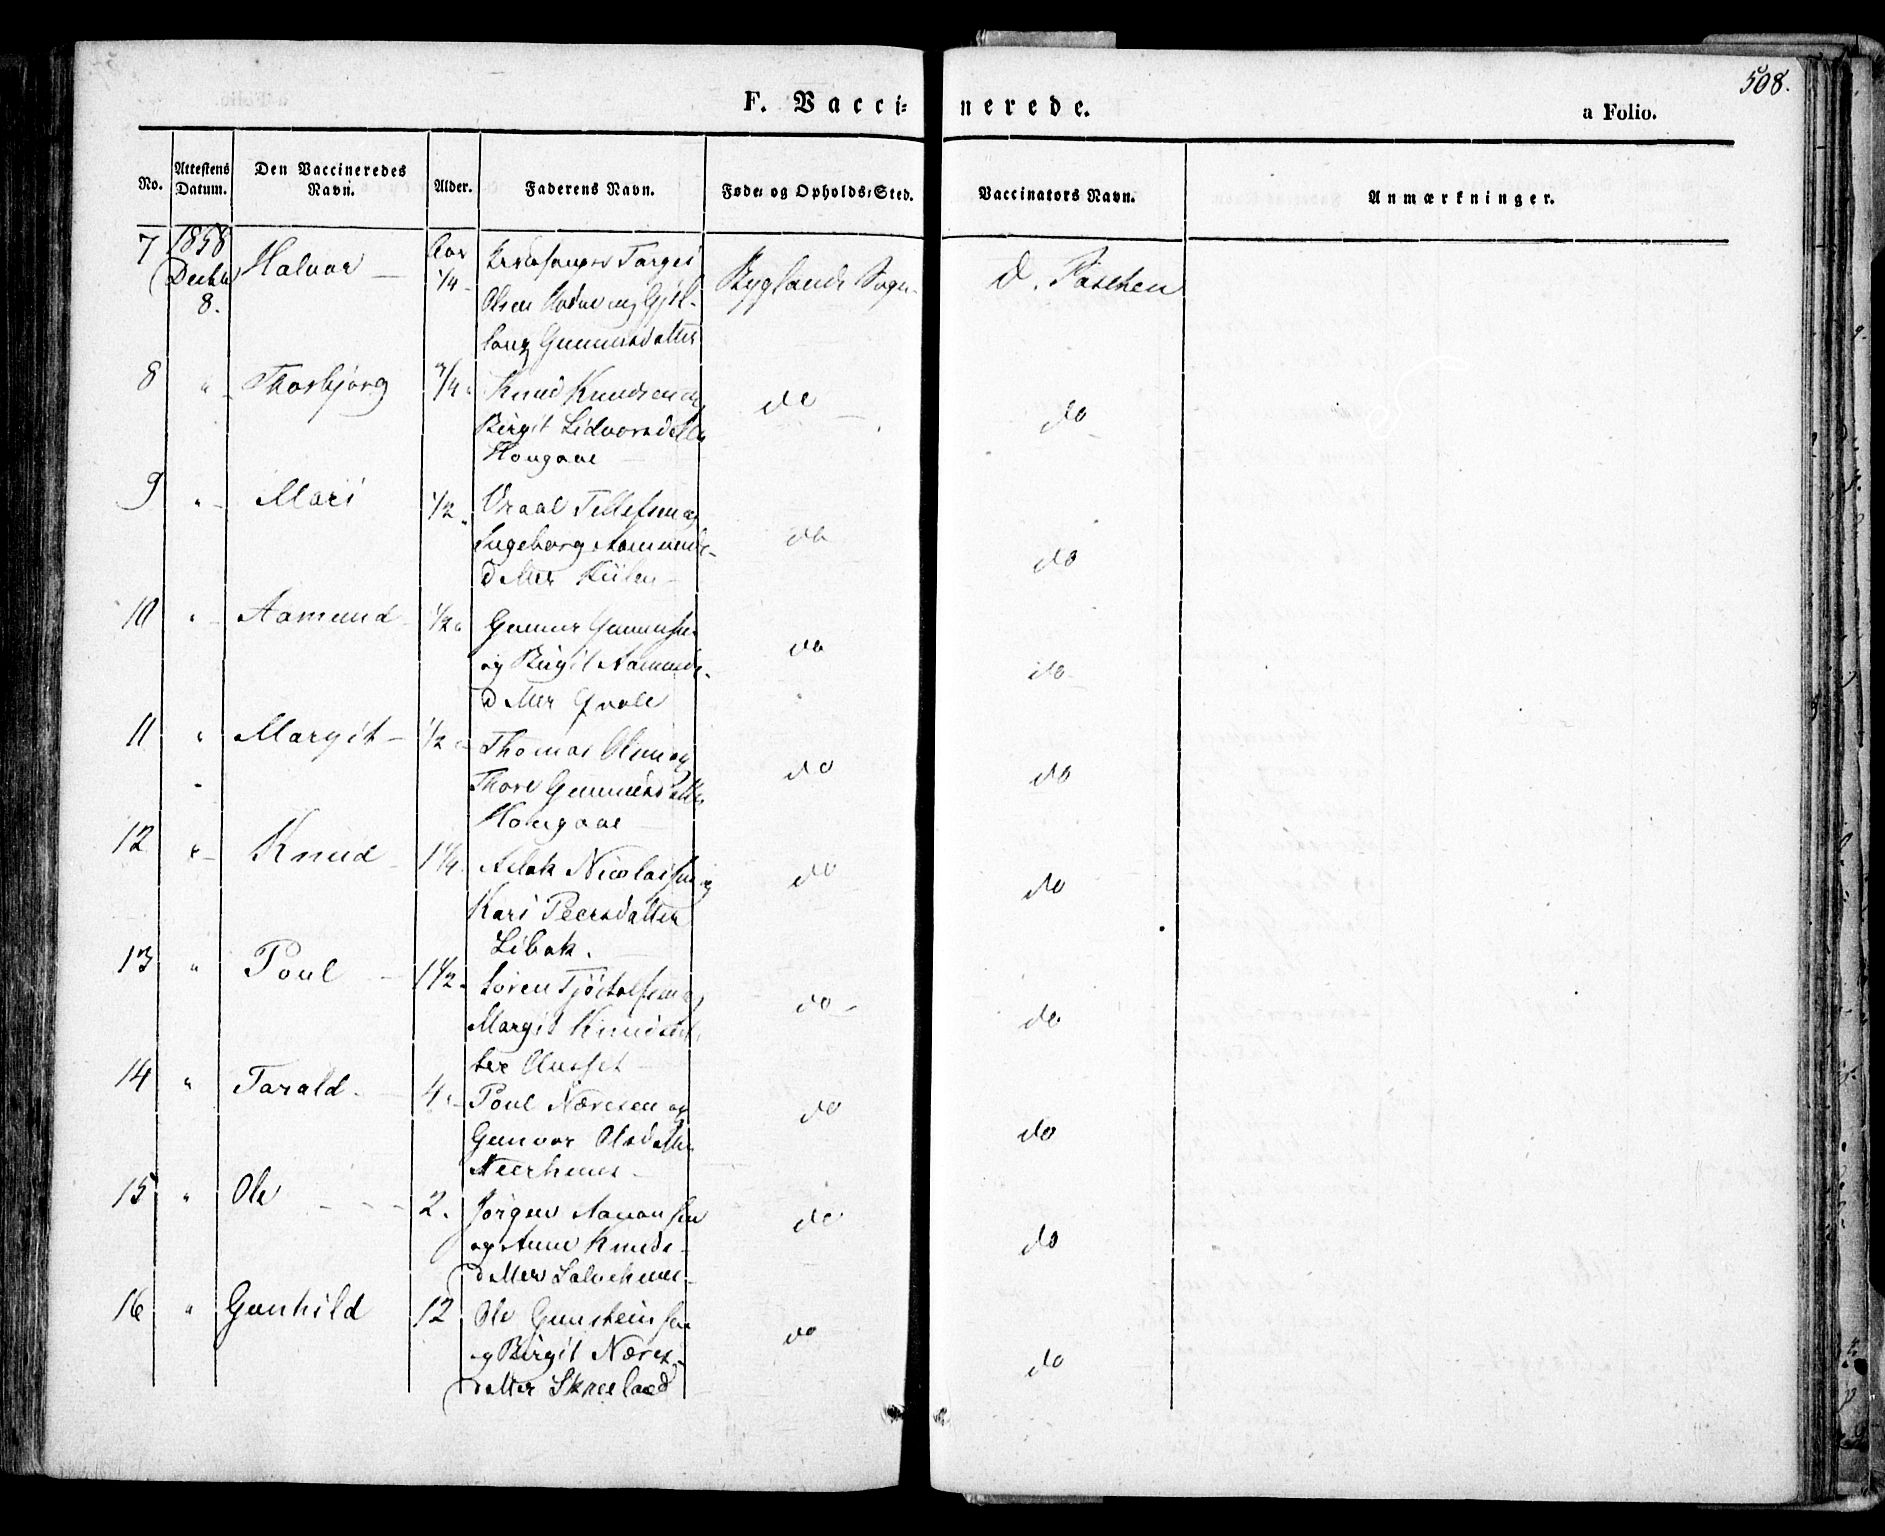 508.
F. Vaccinerede.
a Folio.
No. Attestens Datum. Den Vaccineredes Navn. Alder. Faderens Navn. Føde- og Opholds-Sted. Vaccinators Navn. Anmærkninger.
7 1858 Decbr 8. Halvor Aar 1/4 Targei
Olsen og
Gunnersdatter Byglands Sogn D. Paschen
8 " Thorbjørg 3/4 Knud Knudsen og
Birgit Lidvorsdatter
Hougaae do do
9 " Mari 1/2 Vraal Tellefsen og
Ingeborg Aamunds-
datter do do
10 " Aamund 1/2 Gunner Gunnersen
og Birgit Aamunds-
datter Qvale do do
11 " Margit 1/2 Thomas Olsen og
Thore Gunnersdatter
Hougaae do do
12 " Knud 1 1/4 Aslak Nicolaisen og
Kari Peersdatter
Libak. do do
13 " Poul 1 1/2 Søren Tjøstolfsen og
Margit Knudsdat-
ter do do
14 " Tarald 4 Poul Næresen og
Gunvor Olsdatter
Neerhuus do do
15 " Ole 2. Jørgen Aanonsen
og Anne Knuds-
datter do do
16 " Gunhild 12 Ole Gunsteinsen
og Birgit Næres-
datter Skreelaed do do